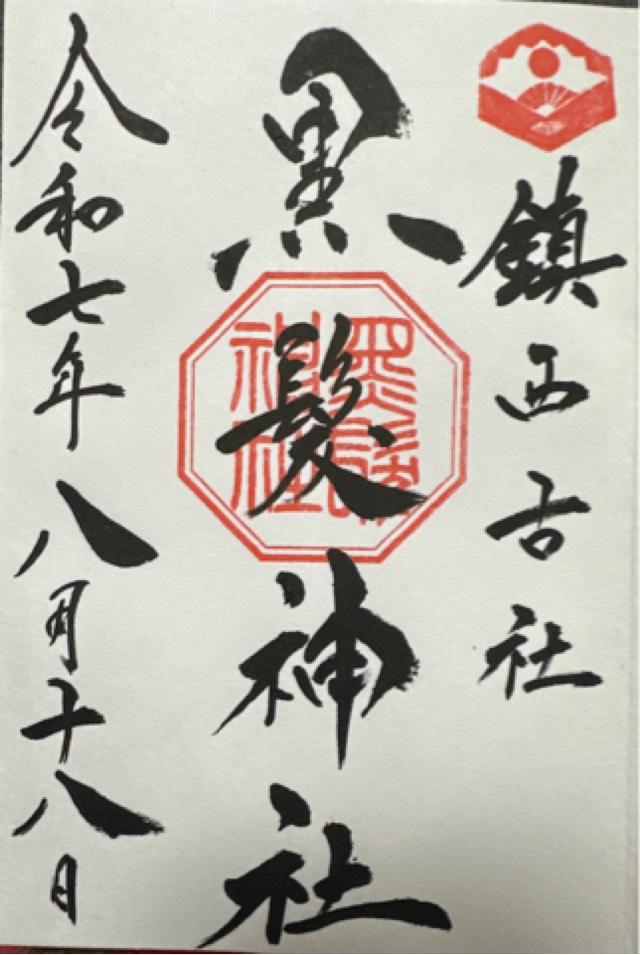 鎮西古社
黒髪神社
黒髪神社
令和七年八月十八日